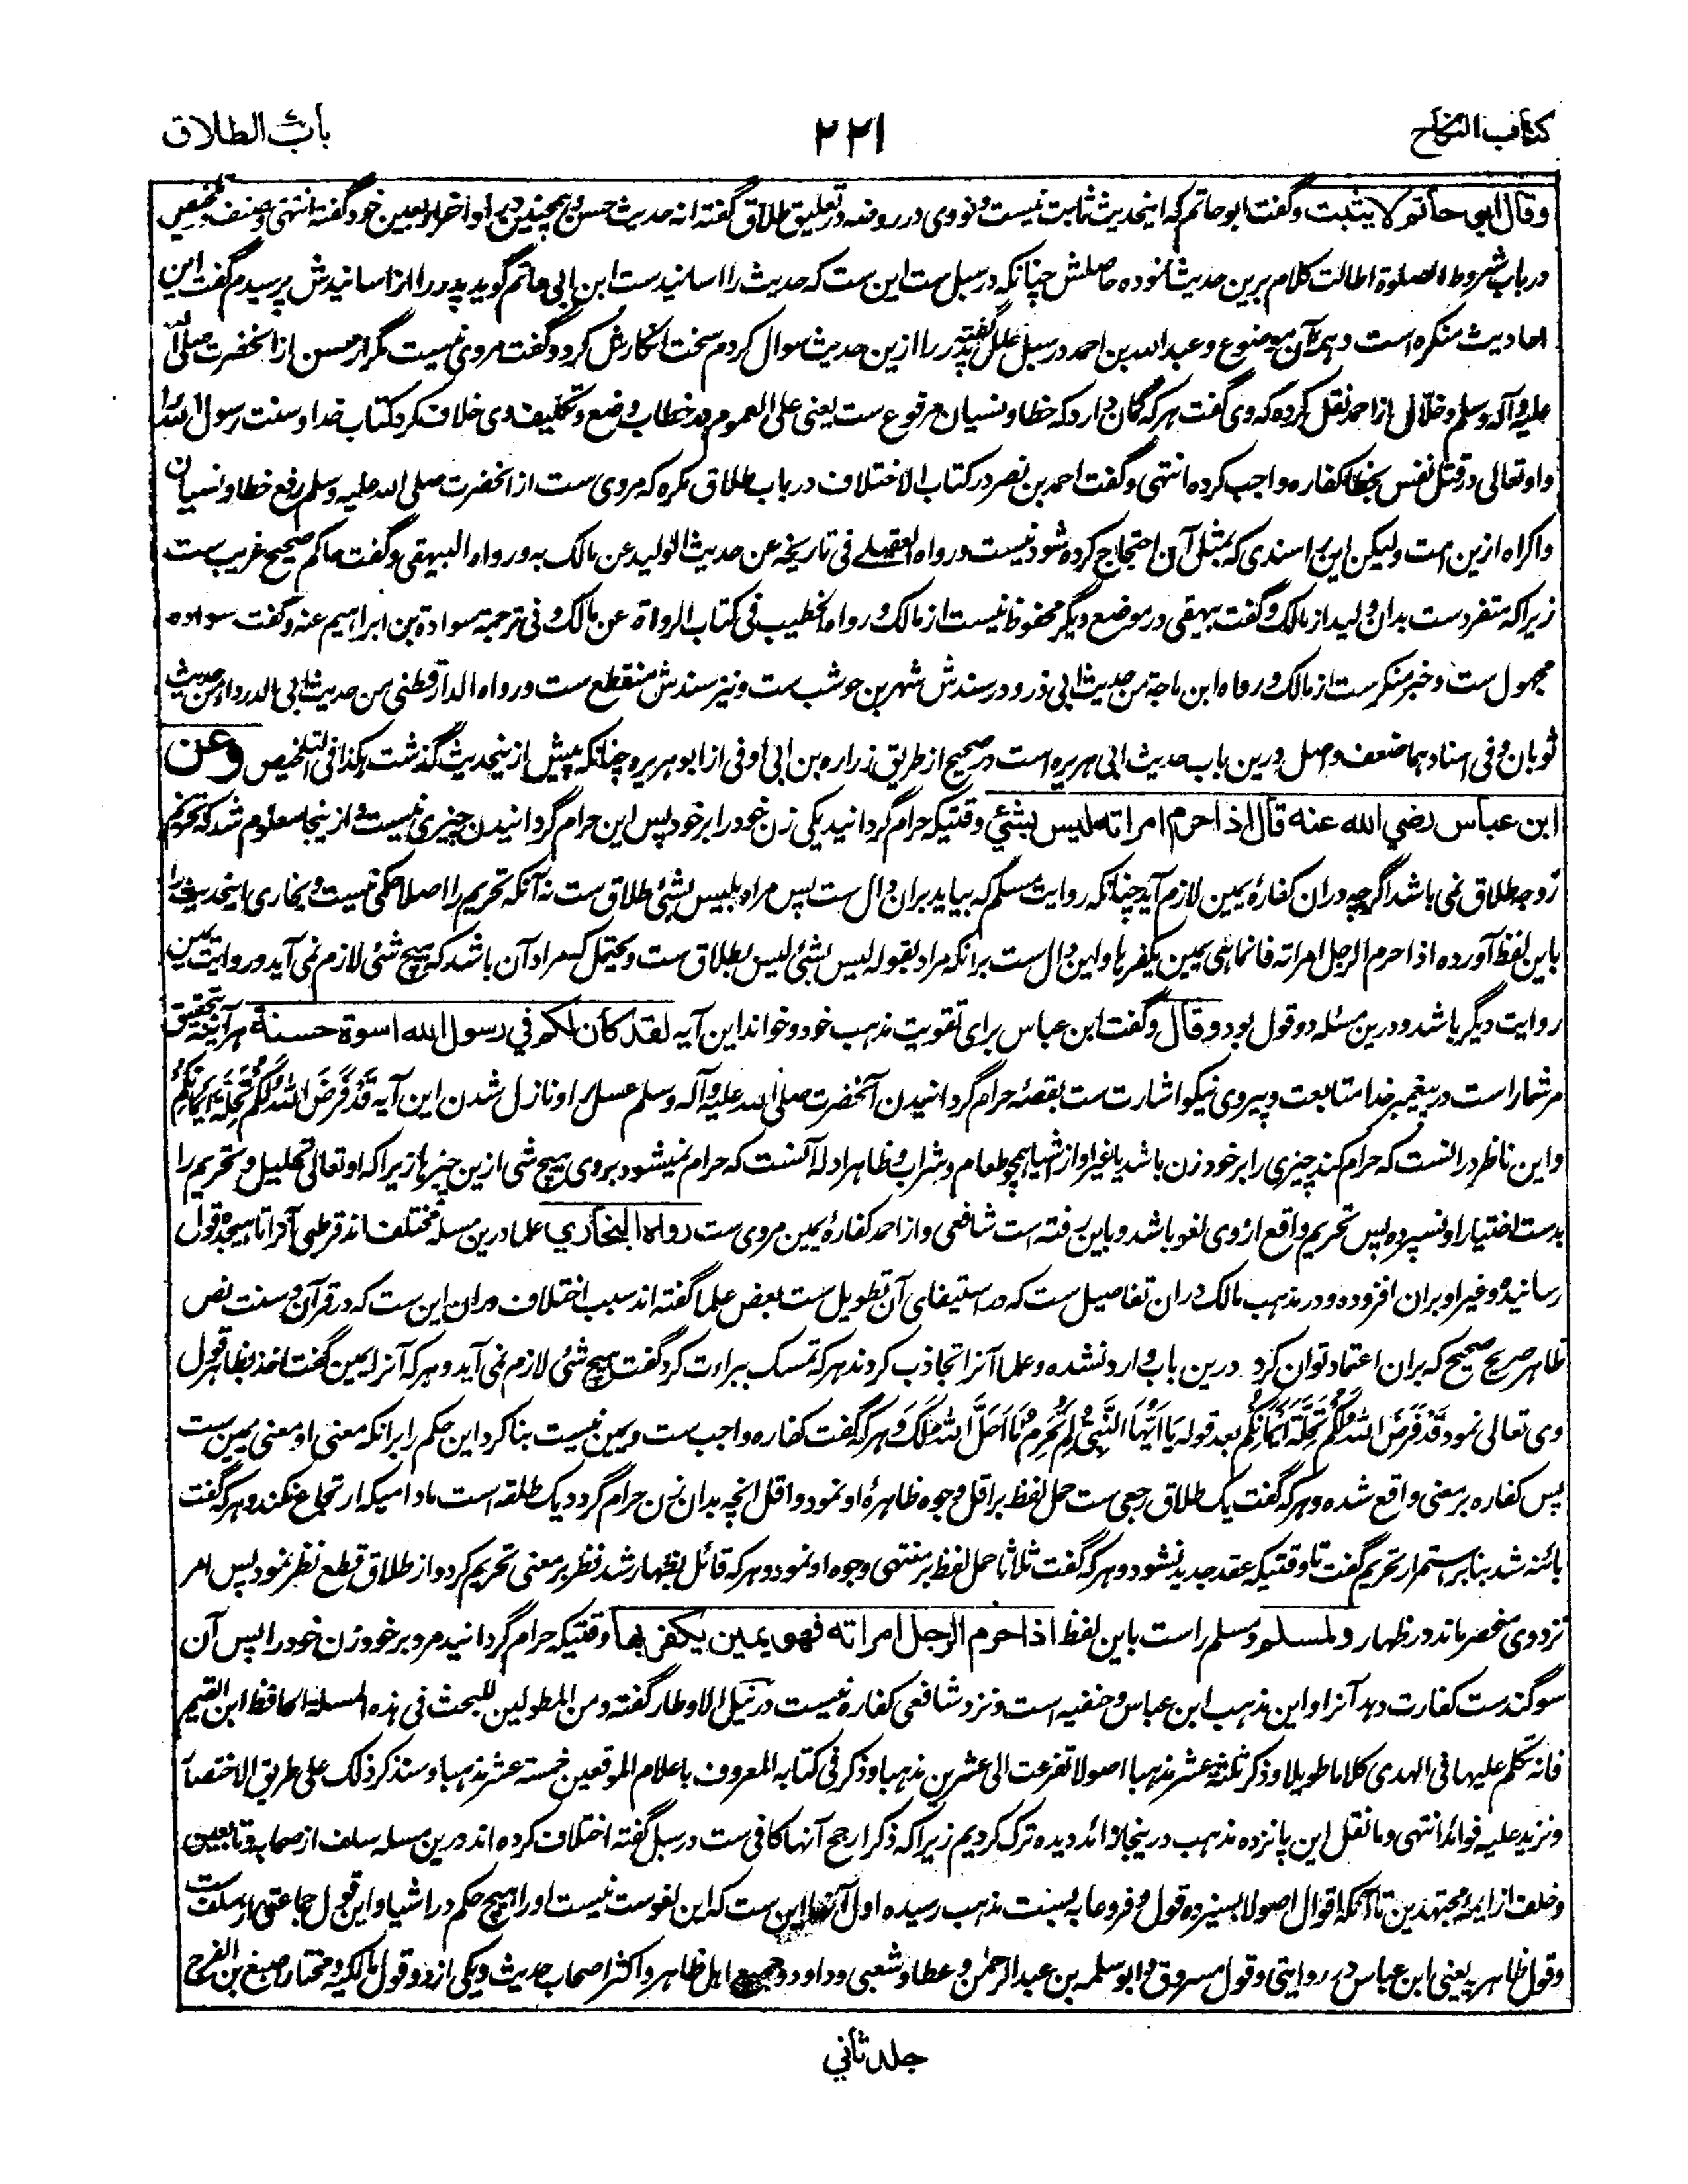 کتاب النکاح
۲۲۱
باب الطلاق
وقال ابو حاتم لا یثبت وگفت ابوحاتم که اینحدیث ثابت نیست و نووی در روضه در تعلیق طلاق گفته انه حدیث حسن و همچنین در اواخر اربعین خود گفته انتهی و مصنف در تلخیص
در باب شروط الصلوة اطالت کلام برین حدیث نموده حاصلش چنانکه در سبل ست این ست که حدیث را اسانید ست ابن ابی حاتم گوید پدر را از اسانیدش پرسیدم گفت این
احادیث منکره است و همه آن موضوع و عبد الله بن احمد در سبل علل گفته پدر را ازین حدیث سوال کردم سخت انکارش کرد و گفت مروی نیست مگر از حسن از آنحضرت صلی الله
علیه وآله وسلم و خلال از احمد نقل کرده که وی گفت هر که گمان دارد که خطا و نسیان مرفوع ست یعنی علی العموم در خطاب وضع و تکلیف وی خلاف کرد کتاب خدا و سنت رسول الله را
و او تعالی در قتل نفس بخطا کفاره واجب کرده انتهی و گفت احمد بن نصر در کتاب الاختلاف در باب طلاق مکره که مروی ست از آنحضرت صلی الله علیه وسلم رفع خطا و نسیان
و اکراه ازین امت ولیکن این را سندی که بمثل آن احتجاج کرده شود نیست و رواه العقیلی فی تاریخه عن حدیث الولید عن مالک به و رواه البیهقی و گفت حاکم صحیح غریب ست
زیرا که متفرد ست بدان ولید از مالک و گفت بیهقی در موضع دیگر محفوظ نیست از مالک و رواه الخطیب فی کتاب الرواة عن مالک و فی ترجمة سوادة بن ابراهیم عنه و گفت سواده
مجهول ست و خبر منکر ست از مالک و رواه ابن ماجة من حدیث ابی ذر و در سندش شهر بن حوشب ست و نیز سندش منقطع ست و رواه الدارقطنی من حدیث ابی الدرداء و من حدیث
ثوبان و فی اسنادهما ضعف و اصل درین باب حدیث ابی هریره است در صحیح از طریق زراره بن ابی اوفی از ابوهریره چنانکه پیش ازینحدیث گذشت هکذا فی التلخیص وعن
ابن عباس رضي الله عنه قال اذا احرم امراته لیس بشيء وقتیکه حرام گردانید یکی زن خود را بر خود پس این حرام گردانیدن چیزی نیست و ازینجا معلوم شد که تحریم
زوجه طلاق نمی باشد اگرچه دران کفارۂ یمین لازم آید چنانکه روایت مسلم که بیاید بران دال ست پس مراد بلیس بشیٔ طلاق ست نه آنکه تحریم را اصلا حکمی نیست و بخاری اینحدیث را
باین لفظ آورده اذا حرم الرجل امراته فانما هی یمین یکفرها و این دال ست برانکه مراد بقوله لیس بشیٔ لیس بطلاق ست و یحتمل که مراد آن باشد که هیچ شیٔ لازم نمی آید و روایت یمین
روایت دیگر باشد و درین مسئله دو قول بود وقال و گفت ابن عباس برای تقویت مذهب خود و خواند این آیه لقد کان لکم في رسول الله اسوة حسنة هر آینه تحقیق
مر شما راست در پیغمبر خدا متابعت و پیروی نیکو اشارت ست بقصۂ حرام گردانیدن آنحضرت صلی الله علیه وآله وسلم عسل را و نازل شدن این آیه قَدْ فَرَضَ اللهُ لَكُمْ تَحِلَّةَ أَيْمَانِكُمْ
و این ناظر در انست که حرام کند چیزی را بر خود زن باشد یا غیر او از اشیا همچو طعام و شراب و ظاهر ادله آنست که حرام نمیشود بر وی هیچ شی ازین چیزها زیرا که او تعالی تحلیل و تحریم را
بدست اختیار او نسپرده پس تحریم واقع از وی لغو باشد و باین رفته است شافعی و از احمد کفارۂ یمین مروی ست رواه البخاري علما درین مسئله مختلف اند قرطبی آنرا تا هیجده قول
رسانیده و غیر او بران افزوده و در مذهب مالک دران تفاصیل ست که در استیفای آن تطویل ست بعض علما گفته اند سبب اختلاف دران این ست که در قرآن و سنت نص
ظاهر صریح صحیح که بران اعتماد توان کرد درین باب وارد نشده و علما آنرا تجاذب کردند هر که تمسک ببراءت کرد گفت هیچ شیٔ لازم نمی آید و هر که آنرا یمین گفت اخذ بظاهر قول
وی تعالی نمود قَدْ فَرَضَ اللهُ لَكُمْ تَحِلَّةَ أَيْمَانِكُمْ بعد قوله يَا أَيُّهَا النَّبِيُّ لِمَ تُحَرِّمُ مَا أَحَلَّ اللهُ لَكَ و هر که گفت کفاره واجب ست و یمین نیست بنا کرد این حکم را برانکه معنی او معنی یمین ست
پس کفاره بر معنی واقع شده و هر که گفت یک طلاق رجعی ست حمل لفظ بر اقل وجوه ظاهرۂ او نمود و اقل انچه بدان زن حرام گردد یک طلقه است مادامیکه ارتجاع نکند و هر که گفت
بائنه شد بنا بر استمرار تحریم گفت تا وقتیکه عقد جدید نشود و هر که گفت ثلاثا حمل لفظ بر منتهی وجوه او نمود و هر که قائل بظهار شد نظر بر معنی تحریم کرد و از طلاق قطع نظر نمود پس امر
نزد وی منحصر ماند در ظهار ولمسلم و مسلم راست باین لفظ اذا حرم الرجل امراته فهو یمین یکفرها وقتیکه حرام گردانید مرد بر خود زن خود را پس آن
سوگند ست کفارت دهد آنرا و این مذهب ابن عباس و حنفیه است و نزد شافعی کفاره نیست در نیل الاوطار گفته و من المطولین للبحث فی هذه المسئلة الحافظ ابن القیم
فانه تکلم علیها فی الهدی کلاما طویلا و ذکر ثلثة عشر مذهبا اصولا تفرعت الی عشرین مذهبا و ذکر فی کتابه المعروف باعلام الموقعین خمسة عشر مذهبا و سنذکر ذلک علی طریق الاختصار
و نزید علیه فوائد انتهی و ما نقل این پانزده مذهب درینجا زائد دیده ترک کردیم زیرا که ذکر ارجح آنها کافی ست در سبل گفته اختلاف کرده اند درین مسله سلف از صحابه و تابعین
و خلف از ایمه مجتهدین تا آنکه اقوال اصولا بسیزده قول و فروعا به بست مذهب رسیده اول آنها این ست که این لغوست نیست او را هیچ حکم در اشیا و این قول جماعتی از سلف ست
و قول ظاهریه یعنی ابن عباس در روایتی و قول مسروق و ابو سلمه بن عبد الرحمٰن و عطا و شعبی و داود و جمیع اهل ظاهر و اکثر اصحاب حدیث و یکی از دو قول مالکیه و مختار اصبغ بن الفرج
جلد ثاني